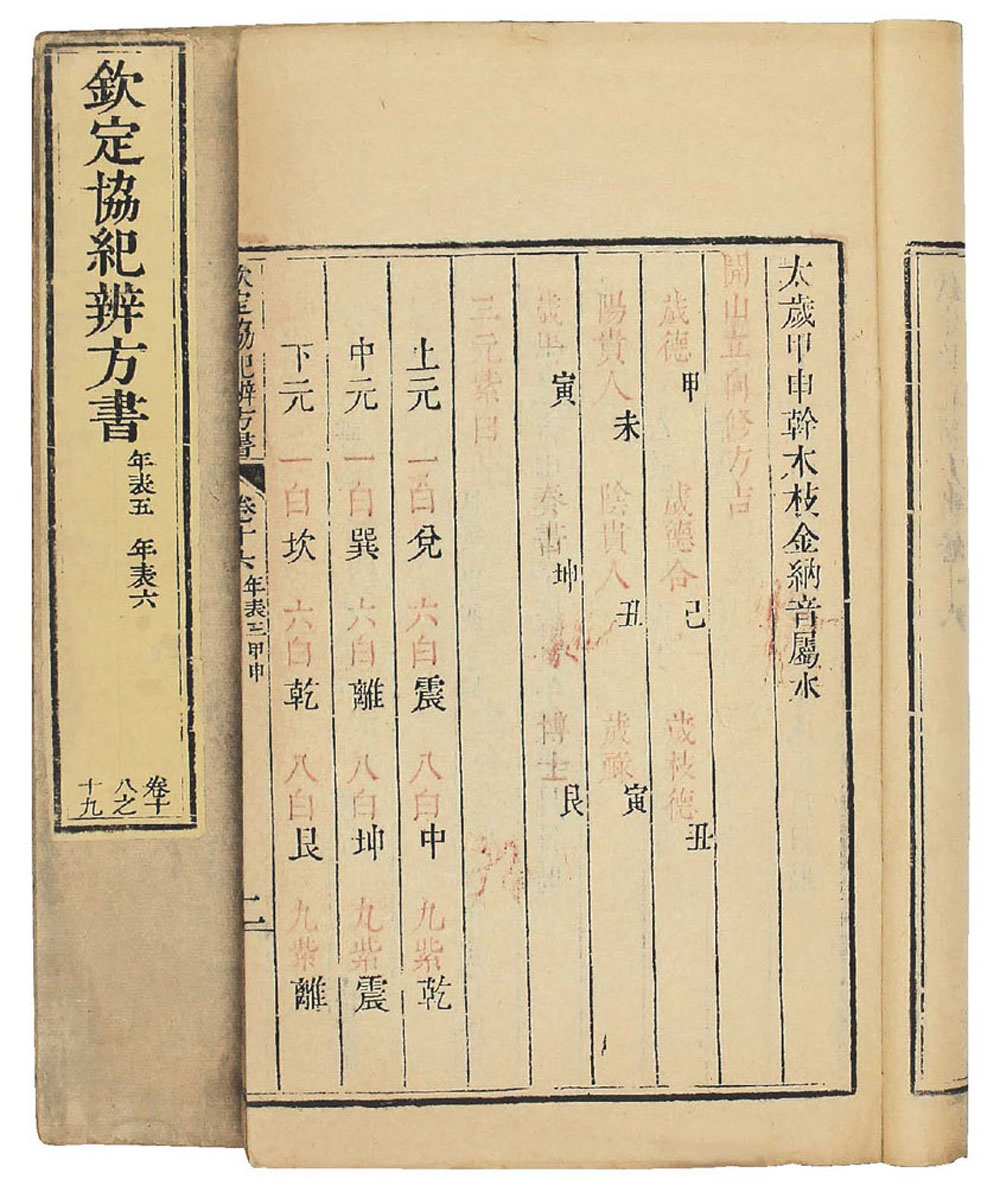 欽定協紀辨方書
年表五 年表六
卷十
八之
十九
太歲甲申幹木枝金納音屬水
開山立向修方吉
歲德甲 歲德合己 歲枝德丑
陽貴人未 陰貴人丑 歲祿寅
歲馬寅 奏書坤 博士艮
三元紫白
上元 一白兌 六白震 八白中 九紫乾
中元 一白巽 六白離 八白坤 九紫震
下元 一白坎 六白乾 八白艮 九紫離
欽定協紀辨方書 卷十六 年表三甲申 二